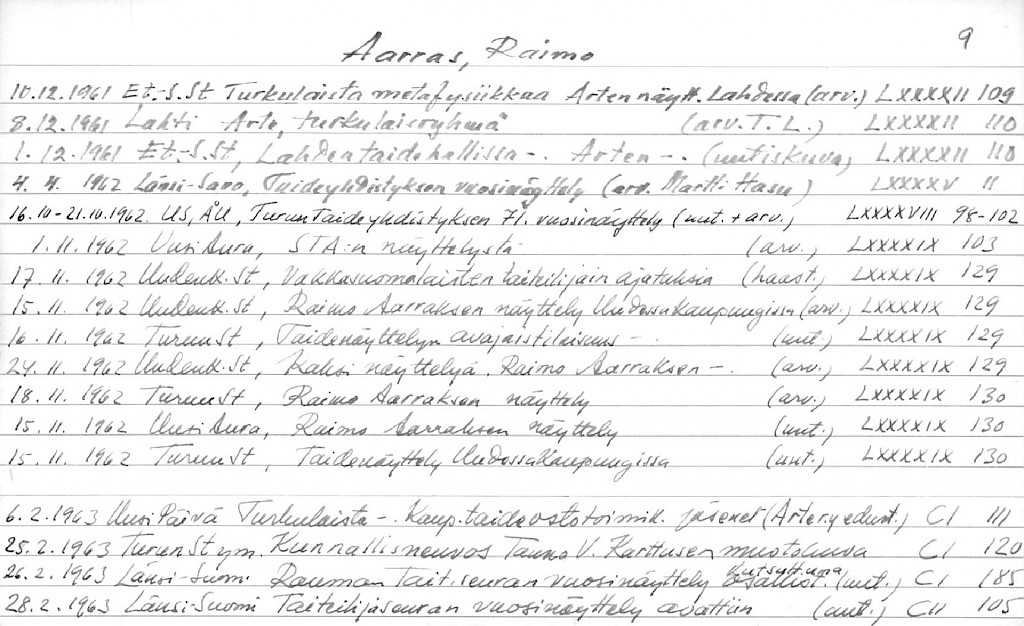 9
Aarras, Raimo
10.12.1961 Et.-S.St Turkulaista metafysiikkaa Arten näytt. Lahdessa (arv.) LXXXXII 109
8.12.1961 Lahti Arte, turkulaisryhmä (arv. T. L.) LXXXXII 110
1.12.1961 Et.-S.St, Lahden taidehallissa -. Arten -. (uutiskuva) LXXXXII 110
4. 4. 1962 Länsi-Savo, Taideyhdistyksen vuosinäyttely (arv. Martti Hasu) LXXXXV 11
16.10-21.10.1962 US, ÅU, Turun Taideyhdistyksen 71. vuosinäyttely (uut. + arv.) LXXXXVIII 98-102
1.11.1962 Uusi Aura, STA:n näyttelystä (arv.) LXXXXIX 103
17.11.1962 Uudenk.St, Vakkasuomalaisten taiteilijain ajatuksia (haast.) LXXXXIX 129
15.11.1962 Uudenk.St, Raimo Aarraksen näyttely Uudessakaupungissa (arv.) LXXXXIX 129
16.11.1962 TurunSt, Taidenäyttelyn avajaistilaisuus -. (uut.) LXXXXIX 129
24.11.1962 Uudenk.St, Kaksi näyttelyä. Raimo Aarraksen -. (arv.) LXXXXIX 129
18.11.1962 TurunSt, Raimo Aarraksen näyttely (arv.) LXXXXIX 130
15.11.1962 Uusi Aura, Raimo Aarraksen näyttely (uut.) LXXXXIX 130
15.11.1962 TurunSt, Taidenäyttely Uudessakaupungissa (uut.) LXXXXIX 130
6.2.1963 Uusi Päivä Turkulaista -. Kaup. taideostotoimik. jäsenet (Arte ry edust.) CI 111
25.2.1963 TurunSt ym. Kunnallisneuvos Tauno V. Karttusen muotokuva CI 120
26.2.1963 Länsi-Suomi Rauman Tait.seuran vuosinäyttely kutsuttuna osallist. (uut.) CI 185
28.2.1963 Länsi-Suomi Taiteilijaseuran vuosinäyttely avattiin (uut.) CII 105